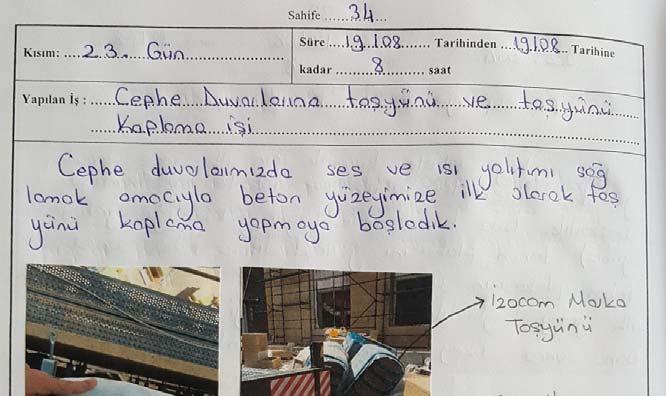 Sahife ......34....
Kısım: ....23....Gün.............
Süre ...19.1.08........ Tarihinden ..19.1.08.. Tarihine
kadar ..........8.......... saat
Yapılan İş : ....Cephe Duvarlarına taşyünü ve taşyünü
Kaplama işi
Cephe duvarlarımızda ses ve ısı yalıtımı sağ
lamak amacıyla beton yüzeyimize ilk olarak taş
yünü kaplama yapmaya başladık.
İzocam Marka
Taşyünü